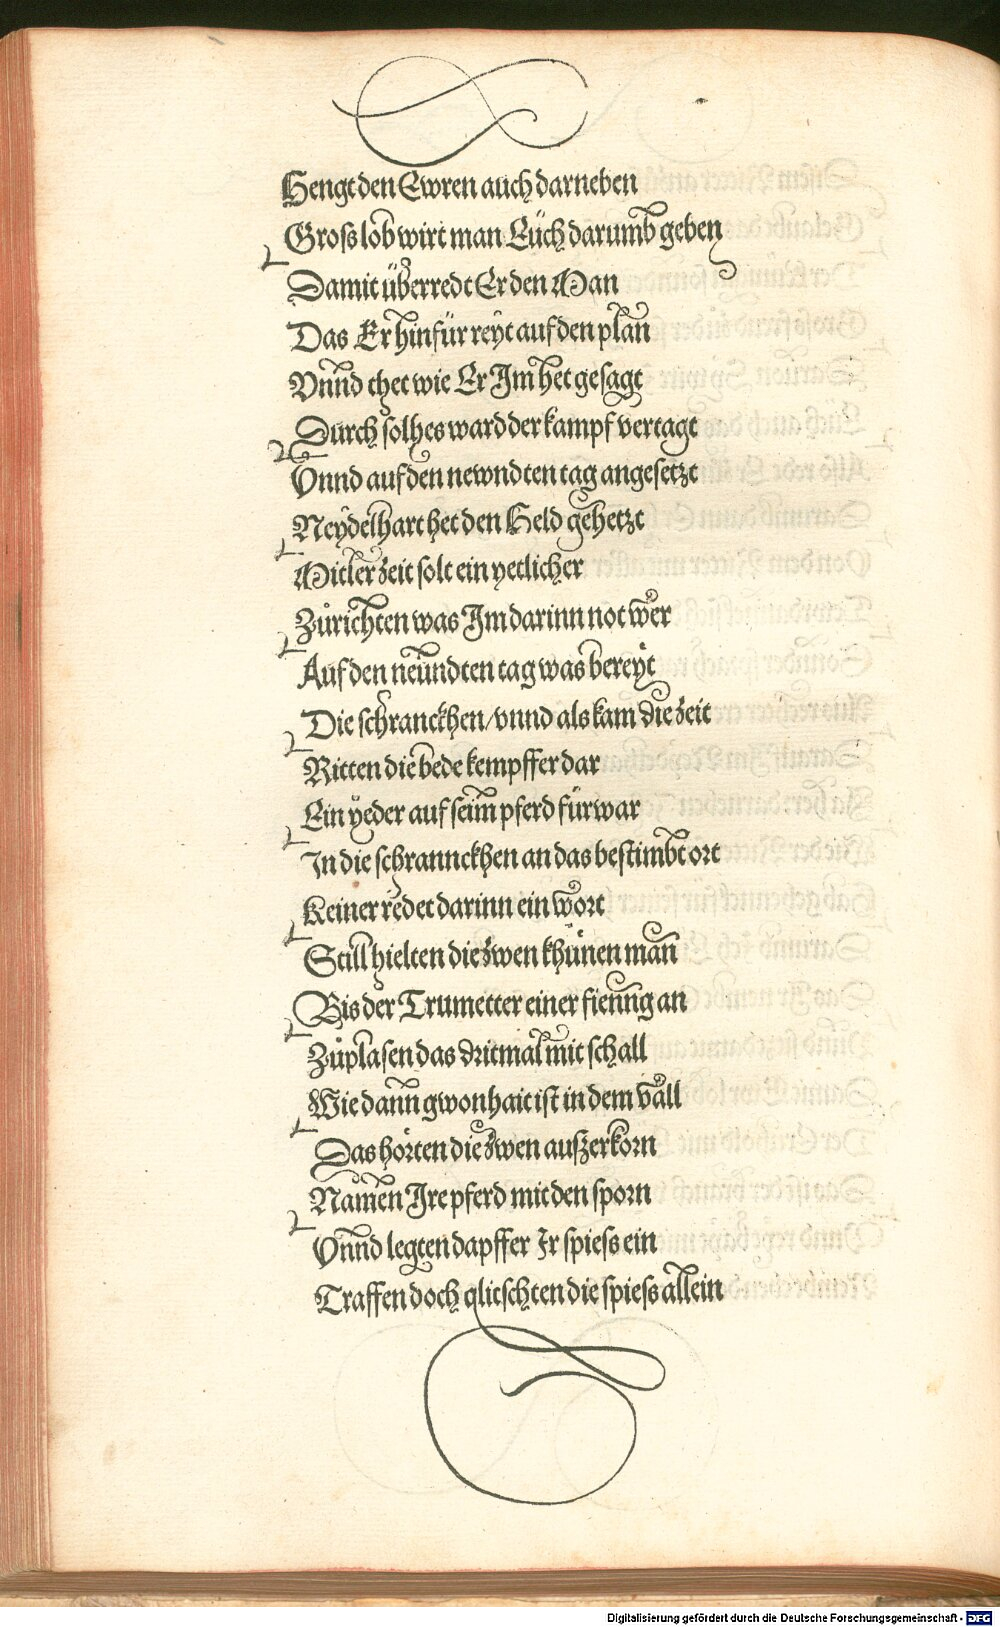 Hengt den Ewren auch darneben
Gross lob wirt man Eüch darumb geben
Damit überredt Er den Man
Das Er hinfür reyt auf den plan
Vnnd thet wie Er Im het gesagt
Durch solhes ward der kampf vertagt
Vnnd auf den newndten tag angesetzt
Neydelhart het den Held gehetzt
Mitler zeit solt ein yetlicher
Zůrichten was Im darinn not wer
Auf den neündten tag was bereyt
Die schranckhen / vnnd als kam die zeit
Ritten die bede kempffer dar
Ein yeder auf seim pferd fürwar
In die schrannckhen an das bestimbt ort
Keiner redet darinn ein wort
Still hielten die zwen khünen man
Bis der Trumetter einer fienng an
Zůplasen das dritmal mit schall
Wie dann gwonhait ist in dem vall
Das hörten die zwen auszerkorn
Namen Ire pferd mit den sporn
Vnnd legten dapffer Ir spiess ein
Traffen doch glitschten die spiess allein
Digitalisierung gefördert durch die Deutsche Forschungsgemeinschaft - DFG